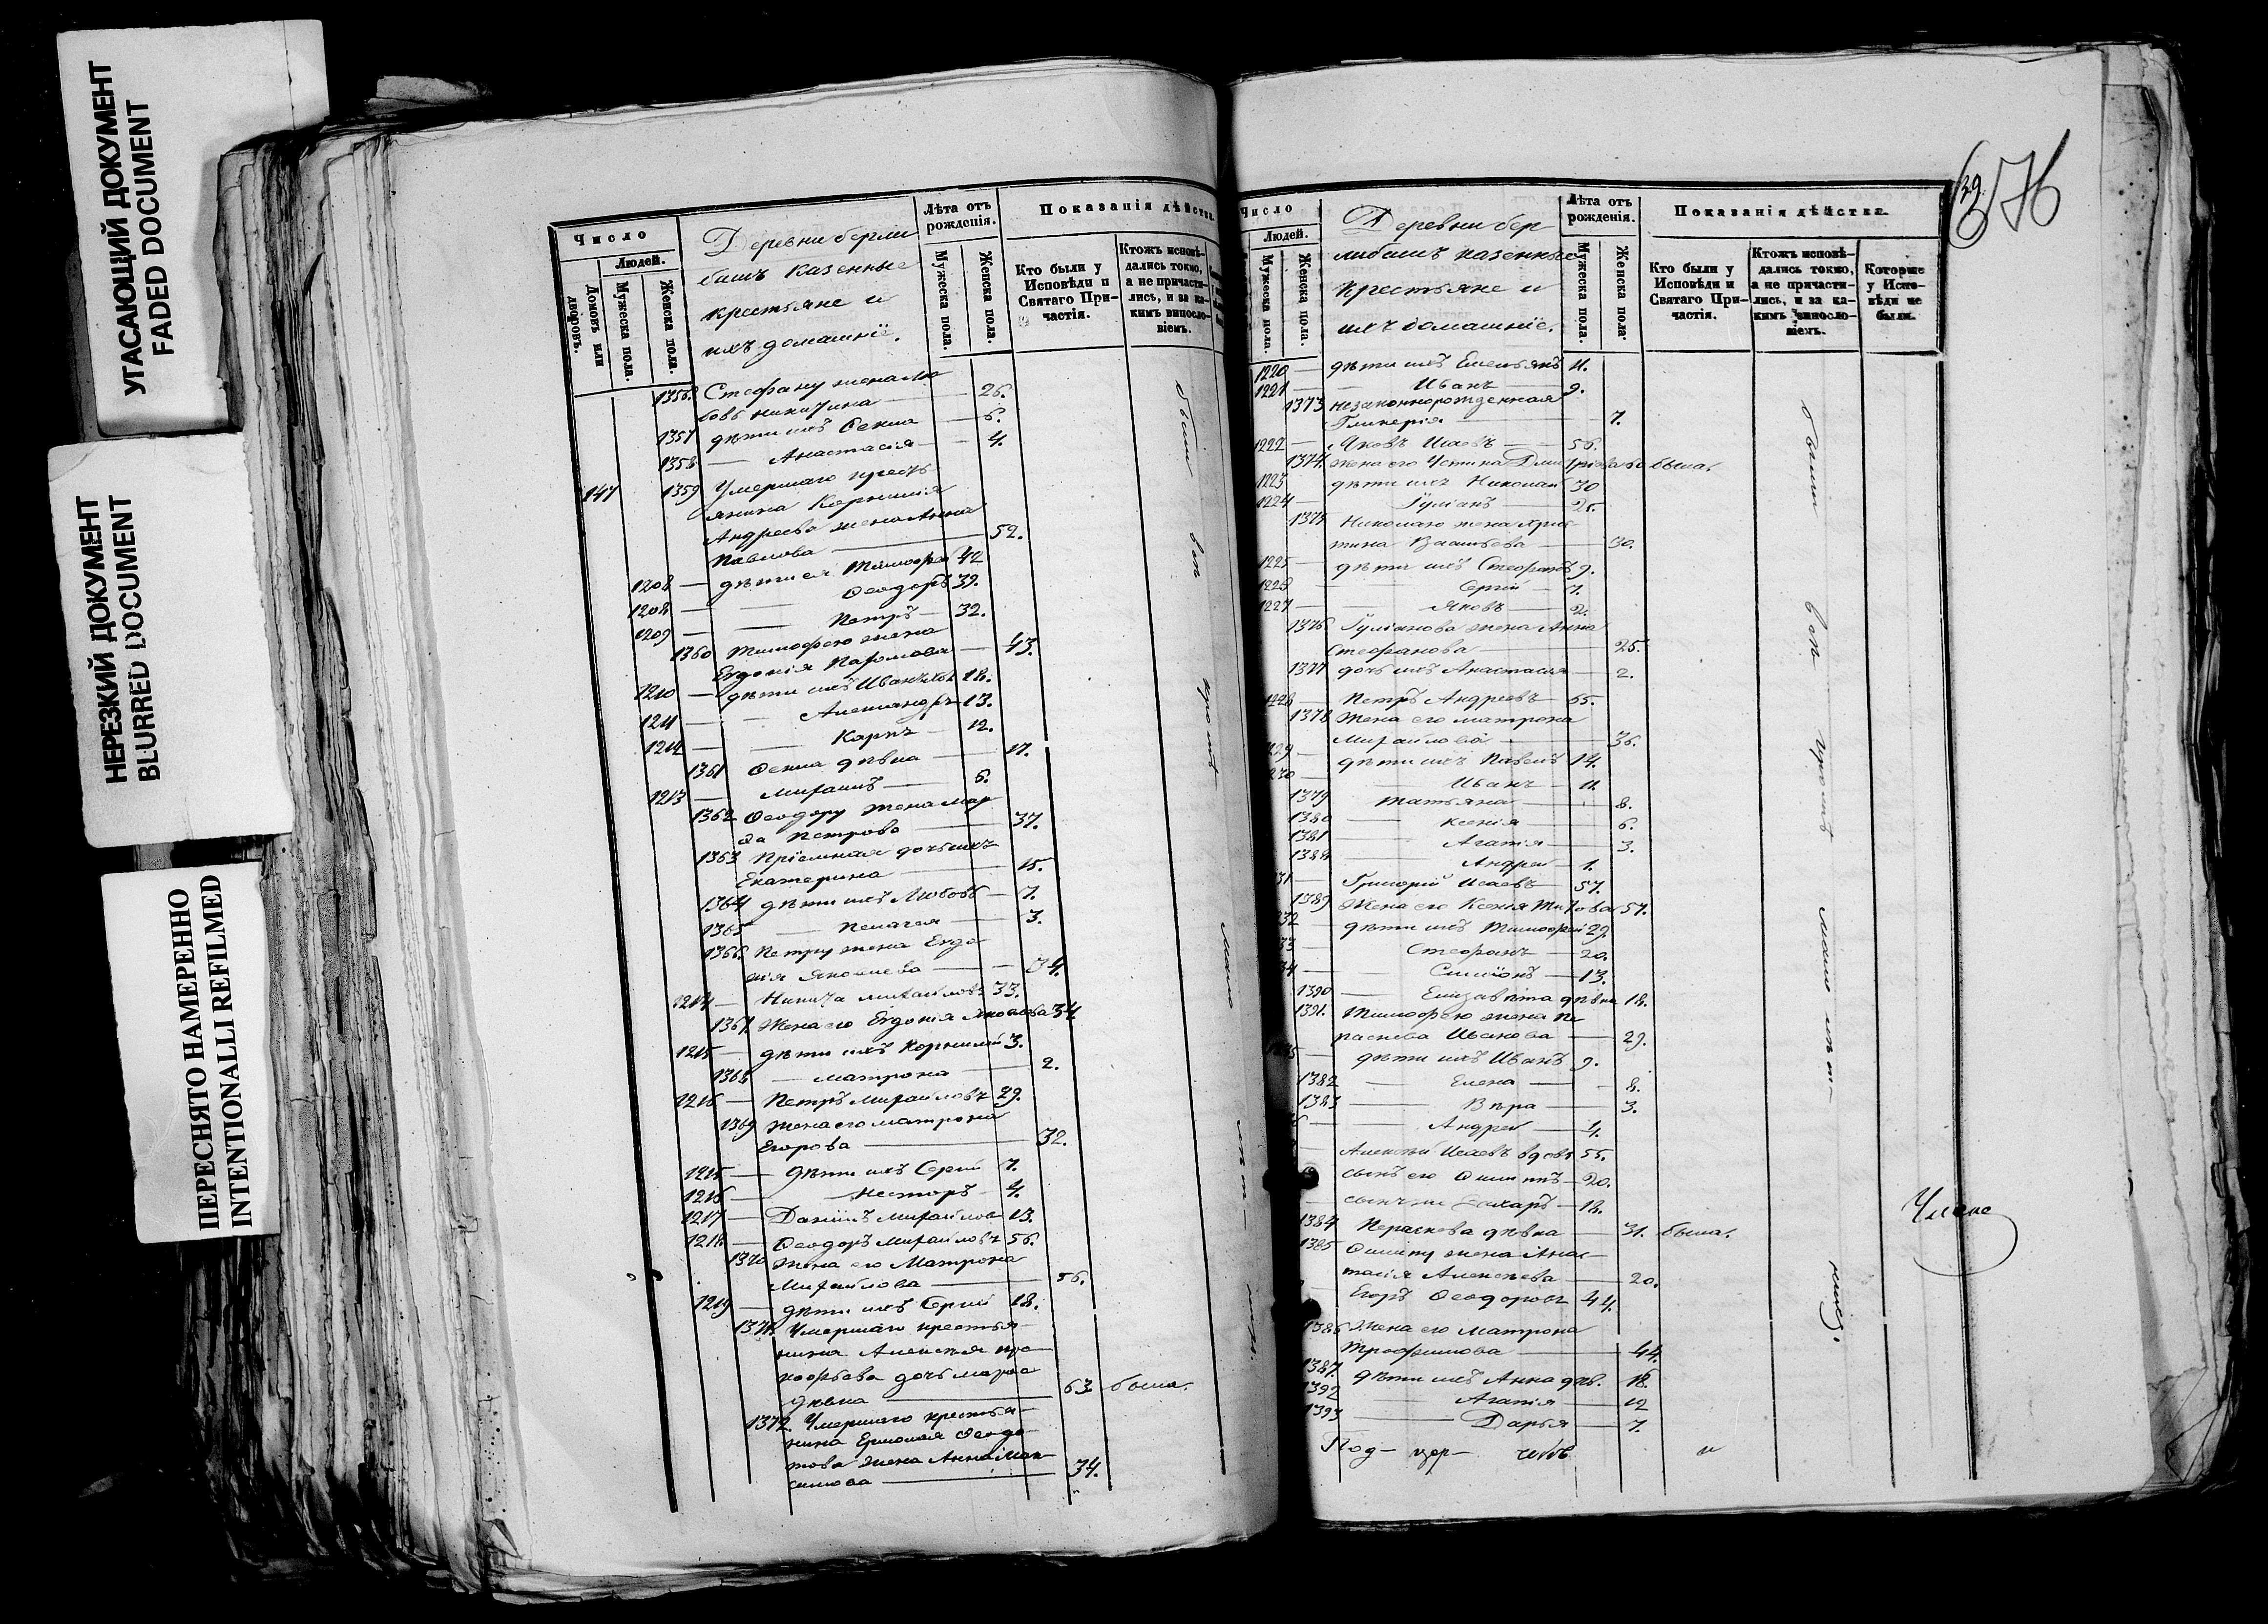 УГАСАЮЩИЙ ДОКУМЕНТ
FADED DOCUMENT
НЕРЕЗКИЙ ДОКУМЕНТ
BLURRED DOCUMENT
ПЕРЕСНЯТО НАМЕРЕННО
INTENTIONALLI REFILMED
Число
Людей.
Домовъ или дворовъ.
Мужеска пола.
Женска пола.
Деревни берли
башъ казенные
крестьяне и
ихъ домашніе.
Лѣта отъ рожденія.
Мужеска пола.
Женска пола.
Показанія дѣйства
Кто были у Исповѣди и Святаго Причастія.
Ктожъ исповѣдались токмо, а не причастились, и за какимъ винословіемъ.
1356. Стефану жена Лю
бовь Никитина — 26.
1357 дѣти ихъ Ѳекла — 6.
1358 — Анастасія — 4.
147 1359 Умершаго кресть
янина Корнилія
Андреева жена Анна
Павлова — 52.
1208 — дѣти ея Тимофей 42
1208 — Ѳеодоръ 39.
1209 — Петръ — 32.
1360 Тимофею жена
Евдокія — 43.
1210 — дѣти ихъ Иванъ 18.
1211 — Александръ 13.
1212 — Карпъ — 12.
1361 Ѳекла дѣвка — 17.
1213 — Михаилъ — 6.
1362 Ѳеодору жена Мар
ѳа Петрова — 37.
1363 Пріемная дочь ихъ
Екатерина — 15.
1364 дѣти ихъ Любовь — 7.
1365 — Пелагея — 3.
1366. Петру жена Евдо
кія Яковлева — 34.
1214 — Никита Михайловъ 33.
1367 Жена его Евдокія Яковлева 34
1215 — дѣти ихъ Корнилій 3.
1368 — Матрона — 2.
1216 — Петръ Михайловъ 29.
1369 Жена его Матрона
Егорова — 32.
1215 — дѣти ихъ Сергій 7.
1216 — Несторъ 4.
1217 — Даніилъ Михайловъ 13.
1218 — Ѳеодоръ Михайловъ 56.
1370 Жена его Матрона
Михайлова — 56.
1219 — дѣти ихъ Сергій 18.
1371. Умершаго крестья
нина Алексѣя Про
кофьева дочь Марѳа
дѣвка — 63. была.
1372. Умершаго крестья
нина Ермолая Ѳеодо
това жена Анна Мак
симова — 34.
были вси кромѣ мало лѣт
Число
Людей.
Мужеска пола.
Женска пола.
Деревни бер
либашъ казенные
крестьяне и
ихъ домашніе.
Лѣта отъ рожденія.
Мужеска пола.
Женска пола.
Показанія дѣйства
Кто были у Исповѣди и Святаго Причастія.
Ктожъ исповѣдались токмо, а не причастились, и за какимъ винословіемъ.
Которые у Исповѣди не были.
39
1220 — дѣти ихъ Емельянъ 11.
1221 — Иванъ — 9.
1373 незаконнорожденная
Гликерія — 7.
1222 — Яковъ Исаевъ — 56.
1374. жена его Устина Дмитріева была.
1223 дѣти ихъ Николай 30
1224 — Іуліанъ — 25.
1375 Николаю жена Хрис
тина Васильева — 30.
1225 — дѣти ихъ Стефанъ 9.
1226 — Сергій — 7.
1227 — Яковъ — 2.
1376. Іуліанова жена Анна
Стефанова — 25.
1377 дочь ихъ Анастасія — 2.
1228 Петръ Андреевъ — 65.
1378 Жена его Матрона
Михайлова — 36.
1229 — дѣти ихъ Павелъ 14.
1230 — Иванъ — 11.
1379 Татьяна — 8.
1380 — Ксенія — 6.
1381 — Агапія — 3.
1388 — Андрей — 1.
31 — Григорій Исаевъ — 57.
1389 Жена его Ксенія Титова 57.
32 — дѣти ихъ Тимофей 29.
33 — Стефанъ — 20.
34 — Симіонъ — 13.
1390 — Елизавета дѣвка 18.
1391. Тимофею жена Па
раскева Иванова — 29.
35 — дѣти ихъ Иванъ 9.
1382 — Елена — 8.
1383 — Вѣра — 3.
6 — Андрей — 4.
Алексѣй Исаевъ вдовъ 55.
сынъ его Филиппъ — 20.
Захаръ — 18.
1384 Параскева дѣвка — 31. была.
1385 Филиппу жена Анас
тасія Алексѣева — 20.
Егоръ Ѳеодоровъ 44.
1386 Жена его Матрона
Трофимова — 44.
1387. дѣти ихъ Анна дѣв. 18.
1392 — Агапія — 12
1393 — Дарья — 7.
были вси кромѣ мало лѣт